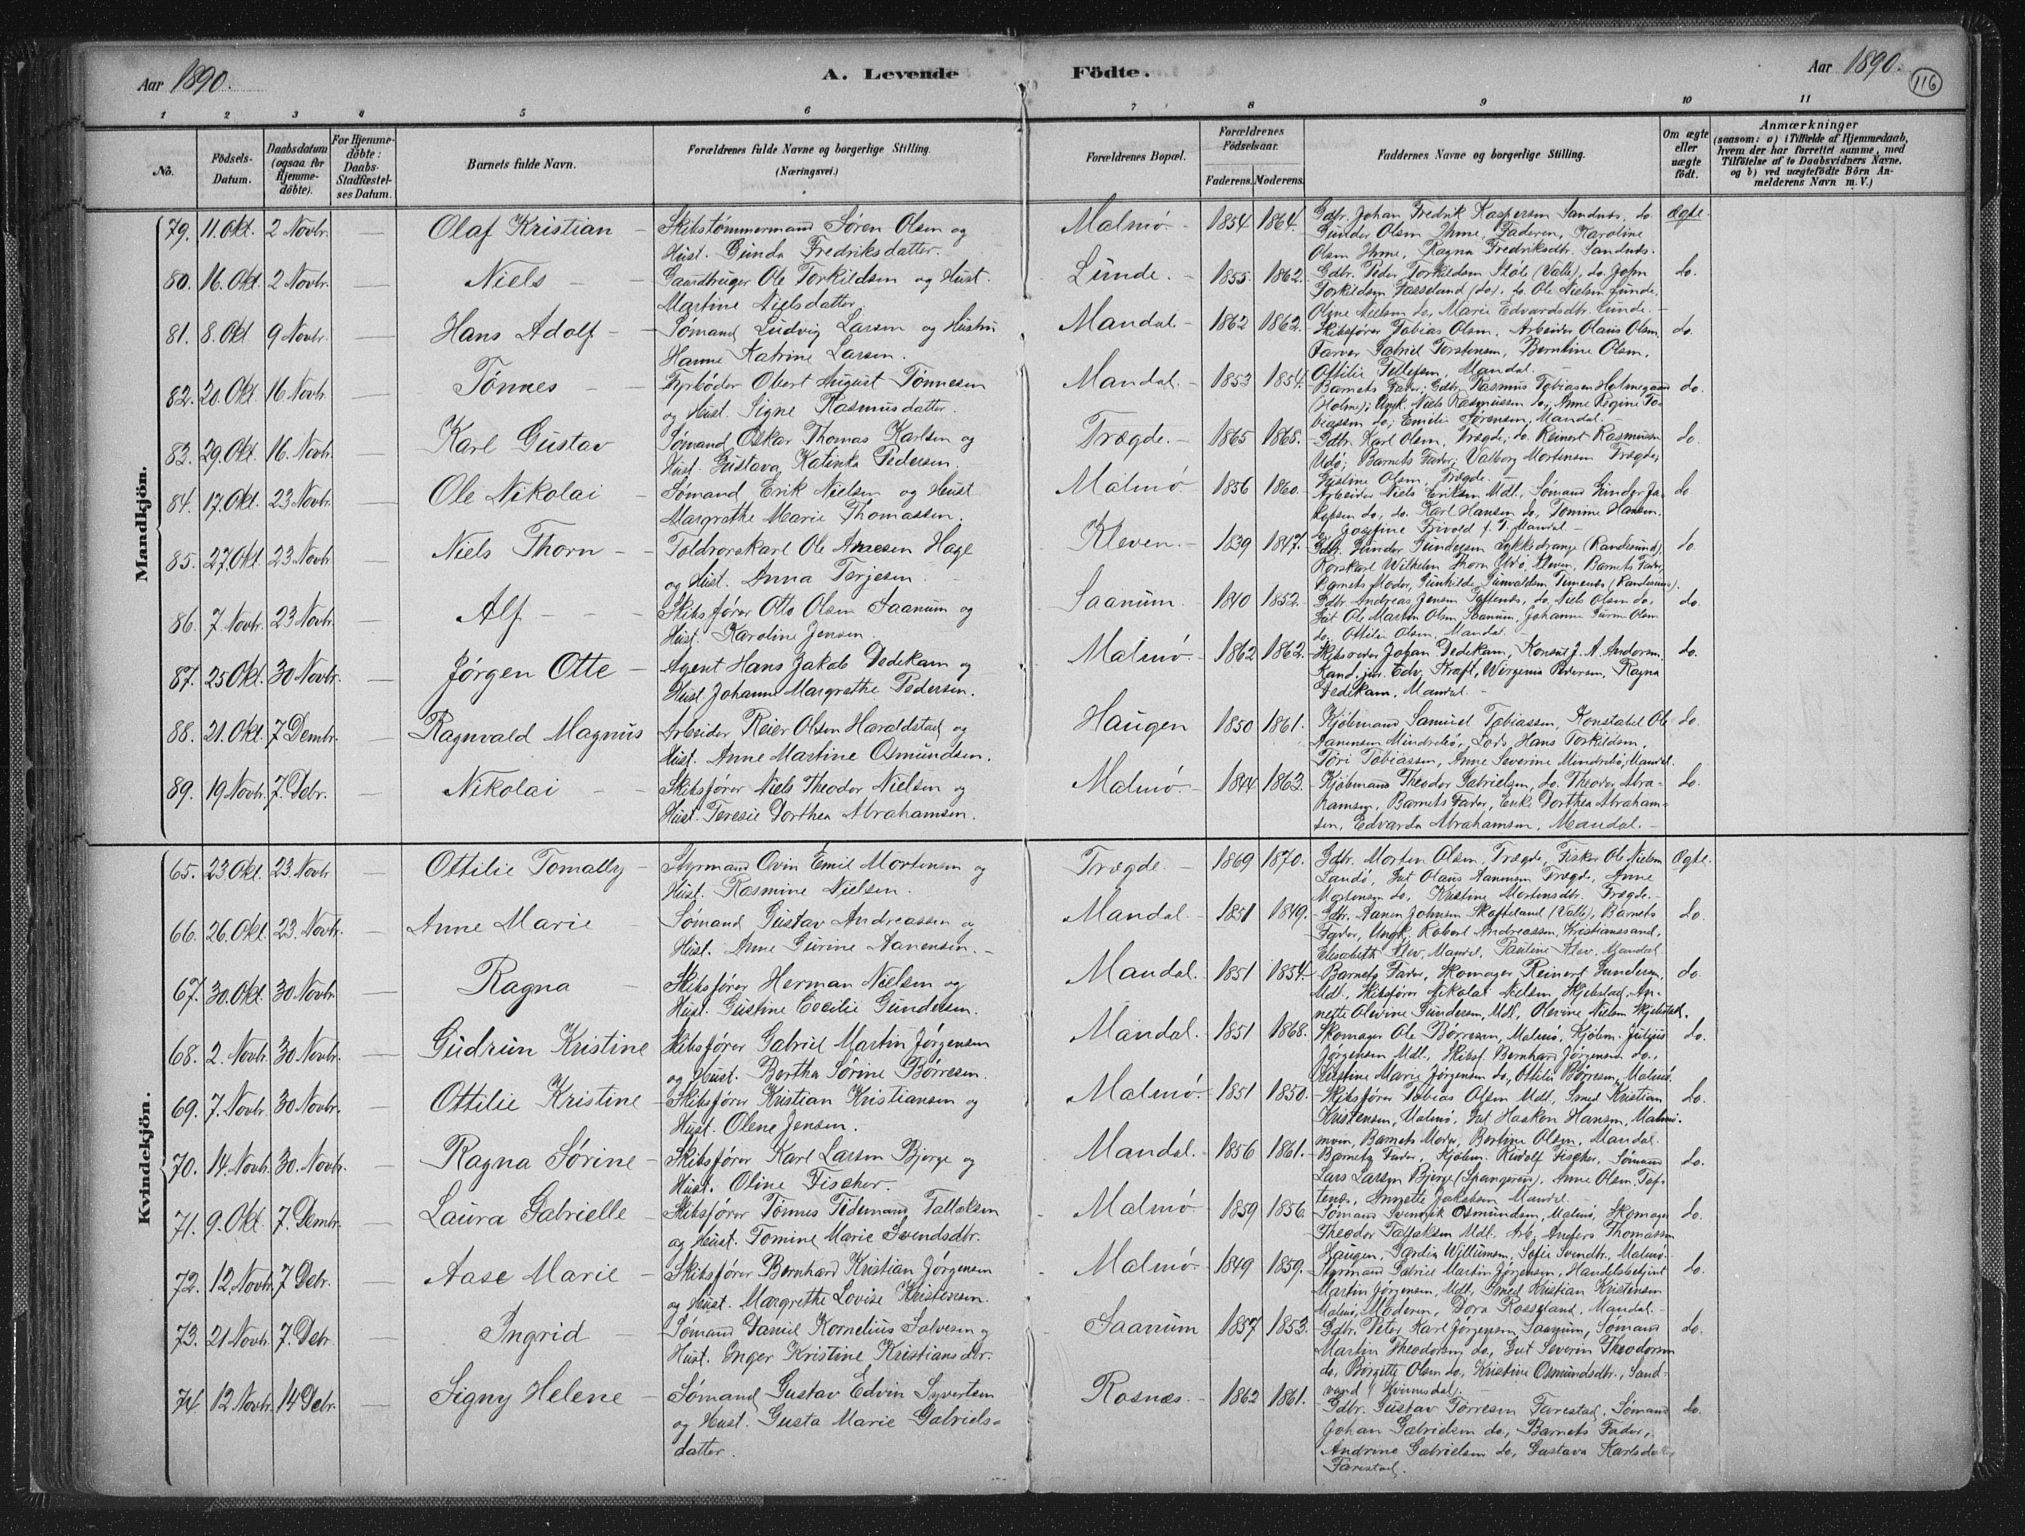 Aar 1890.
A. Levende Födte.
Aar 1890.
116
1 2 3 4 5 6 7 8 9 10 11
No.
Födsels-Datum.
Daabsdatum (ogsaa for Hjemmedöbte).
For Hjemmedöbte: Daabs-Stadfæstelses Datum.
Barnets fulde Navn.
Forældrenes fulde Navne og borgerlige Stilling.
(Næringsvei.)
Forældrenes Bopæl.
Forældrenes Födselsaar.
Faderens. Moderens.
Faddernes Navne og borgerlige Stilling.
Om ægte eller uægte födt.
Anmærkninger
(saasom: a) i Tilfælde af Hjemmedaab, hvem der har forrettet samme, med Tilföielse af to Daabsvidners Navne, og b) ved uægtefödte Börn Anmelderens Navn m. V.)
Mandkjön.
79. 11. Okt. 2 Novbr. — Olaf Kristian — Skibstømmermand Søren Olsen og
Hust. Gunda Fredriksdatter.
Malmø 1854 1864. Gdbr. Johan Fredrik Kaspersen Sandnæs, do. Ægte.
Gunder Olsen Ihme, Faderen, Karoline
Olsen Ihme, Ragna Fredriksdtr. Sandnæs.
80. 16. Okt. 2 Novbr. — Niels — Gaardbruger Ole Torkildsen og Hust.
Martine Nielsdatter.
Lunde. 1855. 1862. Gdbr. Peder Torkildsen Støle (Valle), do. John do.
Torkildsen Fasseland (do), do. Ole Nielsen Lunde,
Olene Nielsen do, Marie Edvardsdtr. Lunde.
81. 8. Okt 9 Novbr. — Hans Adolf — Sømand Ludvig Larsen og Hustru
Hanne Katrine Larsen.
Mandal 1862 1862. Skibsfører Tobias Olsen, Arbeider Olaus Olsen, do.
Farver Gabriel Torstensen, Berntine Olsen,
Ottilie Tellefsen, Mandal.
82. 20. Okt. 16 Novbr. — Tønnes — Fyrbøder Obert August Tønnesen
og Hust. Signe Rasmusdatter.
Mandal. 1853 1854. Barnets Fader; Gdbr. Rasmus Tobiasen Holmegaard do.
(Holme); Ungk. Niels Rasmussen do; Anne Regine To-
biassen do; Emilie Sørensen, Mandal.
83. 29. Okt. 16. Novbr. — Karl Gustav — Sømand Oskar Thomas Karlsen og
Hust. Gustava Katinka Pedersen.
Trægde. 1865 1868. Gdbr. Karl Olsen, Trægde; do. Reinert Rasmussen do.
Udø; Barnets Fader; Valborg Mortensen Trægde;
Olsen, Trægde.
84. 17. Okt. 23 Novbr. — Ole Nikolai — Sømand Erik Nielsen og Hust
Margrethe Marie Thomassen.
Malmø 1856 1860. Arbeider Niels Eriksen Mdl., Sømand Gunder Ja- do
kobsen do, do. Karl Hansen do, Tomine Hansen,
Josefine Mandal
85. 27. Okt. 23 Novbr. — Niels Thorn — Toldrorskarl Ole Anesen Hage
og Hust. Anna Terjesen.
Kleven. 1839 1847. Gdbr. Gunder Gundersen (Randesund), do.
Rorskarl Wilhelm Thorn Udø, Kleven, Barnets Fader,
Barnets Moder, Gunhilde Gunvaldsen (Randesund).
86. 7. Novbr. 23 Novbr. — Alf — Skibsfører Otto Olsen Saanum og
Hust. Karoline Jensen.
Saanum. 1840 1852. Gdbr. Andreas Jensen Toftenæs, do. Niels Olsen do, do.
Gut Ole Martin Olsen Saanum, Johanne Olsen
do. Ottilie Olsen, Mandal.
87. 25 Okt. 30 Novbr. — Jørgen Otte — Agent Hans Jakob Dedekam og
Hust. Johanne Margrethe Pedersen.
Malmø. 1862 1862. Skibsreder Johan Dedekam, Konsul J. A. Andorsen, do.
Kand. jur. Edv. Kraft, Wirgenia Pedersen, Ragna
Dedekam, Mandal.
88. 21. Okt. 7 Dcmbr. — Ragnvald Magnus Arbeider Reier Olsen Haraldstad og
Hust. Anne Martine Osmundsen.
Haugen 1850 1861. Kjøbmand Samuel Tobiassen, Konstabel Ole do.
Aanensen Mindrebø, Lods Hans Torkildsen,
Tori Tobiassen, Anne Severine Mindrebø, Mandal.
89. 19 Novbr. 7. Dcbr. — Nikolai — Skibsfører Niels Theodor Nielsen og
Hust. Teresie Dorthea Abrahamsen.
Malmø. 1844 1863. Kjøbmand Theodor Gabrielsen, do. Theodor Abra- do.
hamsen, Barnets Fader, Enke Dorthea Abraham-
sen, Edvarda Abrahamsen, Mandal.
Kvindekjön.
65. 23 Okt. 23. Novbr — Ottilie Tomally — Styrmand Ovin Emil Mortensen og
Hust. Rasmine Nielsen.
Trægde. 1869 1870. Gdbr. Morten Olsen, Trægde, Fisker Ole Nielsen Ægte.
Landø, Gut Olaus Aanensen Trægde, Anne
Mortensen do, Kristine Mortensdtr. Trægde.
66. 26. Okt. 23. Novbr. — Anne Marie — Sømand Gustav Andreassen og
Hust. Anne Gurine Aanensen.
Mandal. 1851 1849. Gdbr. Aanen Johnsen Skoffeland (Valle), Barnets do.
Fader, Ungk. Robert Andreassen, Kristianssand,
Elisabeth Klev, Mandal, Pauline Klev, Mandal
67. 30. Okt. 30 Novbr. — Ragna — Skibsfører Herman Nielsen og
Hust. Gustine Cecilie Gundersen.
Mandal. 1851 1854. Barnets Fader, Skomager Reinert Gundersen, do.
Mdl., Skibsfører Nikolai Nielsen, Skjebstad, An-
nette Olevine Gundersen, Mdl., Olevine Nielsen Skjebstad.
68. 2. Novbr. 30 Novbr. — Gudrun Kristine Skibsfører Gabriel Martin Jørgensen
og Hust. Bertha Sørine Børresen.
Mandal. 1851 1868. Skomager Ole Børresen, Malmø, Kjøbm. Julius do.
Jørgensen Mdl., Skibsf. Bernhard Jørgensen do.,
Marie Jørgensen do, Ottilie Børresen, Malmø.
69. 7. Novbr. 30 Novbr. — Ottilie Kristine — Skibsfører Kristian Kristiansen og
Hust. Olene Jensen.
Malmø. 1851 1850. Skibsfører Tobias Olsen Mdl., Smed Kristian do.
Kristensen, Malmø, Gut Haakon Hansen, Malmø-
moen, Barnets Moder, Bertine Olsen, Mandal.
70. 14. Novbr. 30. Novbr. — Ragna Sørine — Skibsfører Karl Larsen Bjorge og
Hust. Oline Fischer.
Mandal. 1856 1861. Barnets Fader, Kjøbm. Rudolf Fischer, Sømand do.
Lars Larsen Bjørge (Spangereid), Anne Olsen, Tof-
tenes, Annette Jakobsen Mandal.
71. 9. Okt. 7. Dcmbr. — Laura Gabrielle — Skibsfører Tønnes Tidemand Tallaksen
og Hust. Tomine Marie Svendsdtr.
Malmø 1859 1856. Sømand Osmundsen, Malmø, Skomager do.
Theodor Tallaksen Mdl. Arb. Anders Thomassen
Haugen, Wittunsen, Sofie Svendtr. Malmø.
72. 12 Novbr. 7 Dcbr. — Aase Marie — Skibsfører Bernhard Kristian Jørgensen
og Hust. Margrethe Lovise Kristensen.
Malmø. 1849 1859. Styrmand Gabriel Martin Jørgensen, Handelsbetjent do.
Martin Jørgensen, Mdl., Smed Kristian Kristensen
Malmø, Moderen, Dora Rosseland, Mandal.
73. 21 Novbr. 7. Dcbr. — Ingrid — Sømand Daniel Kornelius Salvesen og
Hust. Inger Kristine Kristiansdtr.
Saanum 1857 1853. Gdbr. Peter Karl Jørgensen Saanum, Sømand do.
Martin Theodorsen do, Gut Severin Theodorsen
do, Birgitte Olsen do, Kristine Osmundsdtr., Sand-
vand, Kvinesdal.
74 12 Novbr. 14 Dcbr. — Signy Helene — Sømand Gustav Edvin Syvertsen
og Hust. Gusta Marie Gabriels-
datter.
Rosnæs. 1862 1861. Gdbr. Gustav Torresen Farestad, Sømand do.
Johan Gabrielsen do, Barnets Fader,
Andrine Gabrielsen do, Gustava Karlsdatter
Farestad.